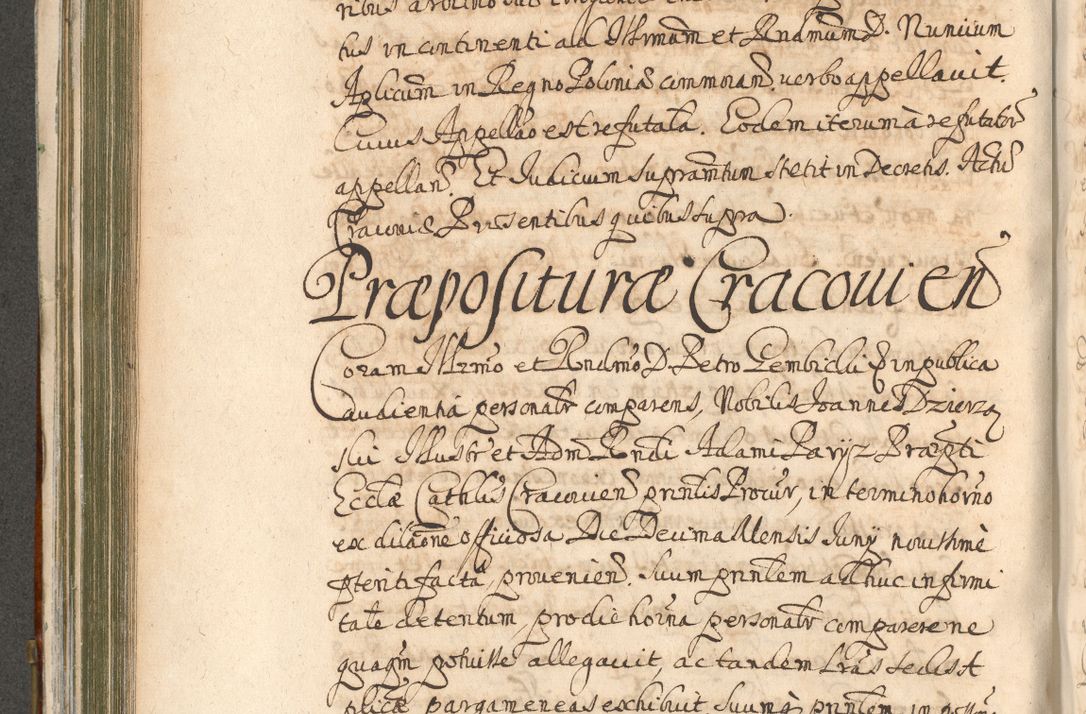 tus in continenti ad Illmum et Rndmum D. Nuncium
Aplicum in Regno Poloniæ commoran. uerbo appellauit.
Cuius Appellao est refutata. Eodem iterum à refutatoe
appellan. Et Iudicium supramtum stetit in Decretis. Actu
Cracoviæ Præsentibus quibus supra.
Præposituræ Cracouien
Coram Illrmo et Rndmo D. Petro Gembicki Epo in publica
audientia personalr comparens, Nobilis Joannes Dzierzą
ski Illustr et Adm Rndi Adami Paryz Præpti
Ecclæ Cathlis Cracouien prinlis Procur, in termino horno
ex dilaone officiosa Die Decima Mensis Iuny nouissime
pteriti facta, prouenien. Suum prinlem adhuc infirmi
tate detentum, pro die horna personalr comparere ne
quaqm potuisse allegauit, ac tandem Lras Sedis A
plicæ pargameneas exhibuit Suum prinlem in